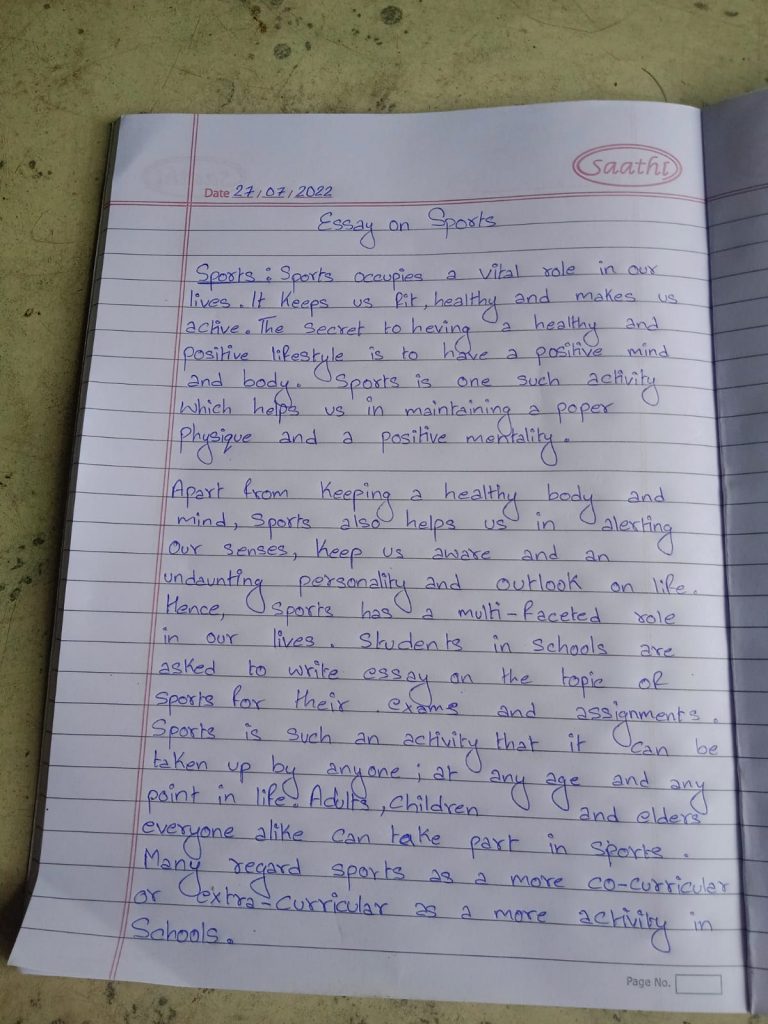 Saathi
Date 27/07/2022
Essay on Sports
Sports : Sports occupies a vital role in our
lives. It keeps us fit, healthy and makes us
active. The secret to heving a healthy and
positive lifestyle is to have a positive mind
and body. Sports is one such activity
which helps us in maintaining a poper
Physique and a positive mentality.
Apart from keeping a healthy body and
mind, sports also helps us in alerting
Our senses, keep us aware and an
undaunting personality and outlook on life.
Hence, sports has a multi-faceted role
in our lives. Students in schools are
asked to write essay on the topic of
sports for their exams and assignments.
Sports is such an activity that it can be
taken up by anyone ; at any age and any
point in life. Adults, children and elders
everyone alike can take part in sports.
Many regard sports as a more co-curricular
or extra-curricular as a more activity in
Schools.
Page No.